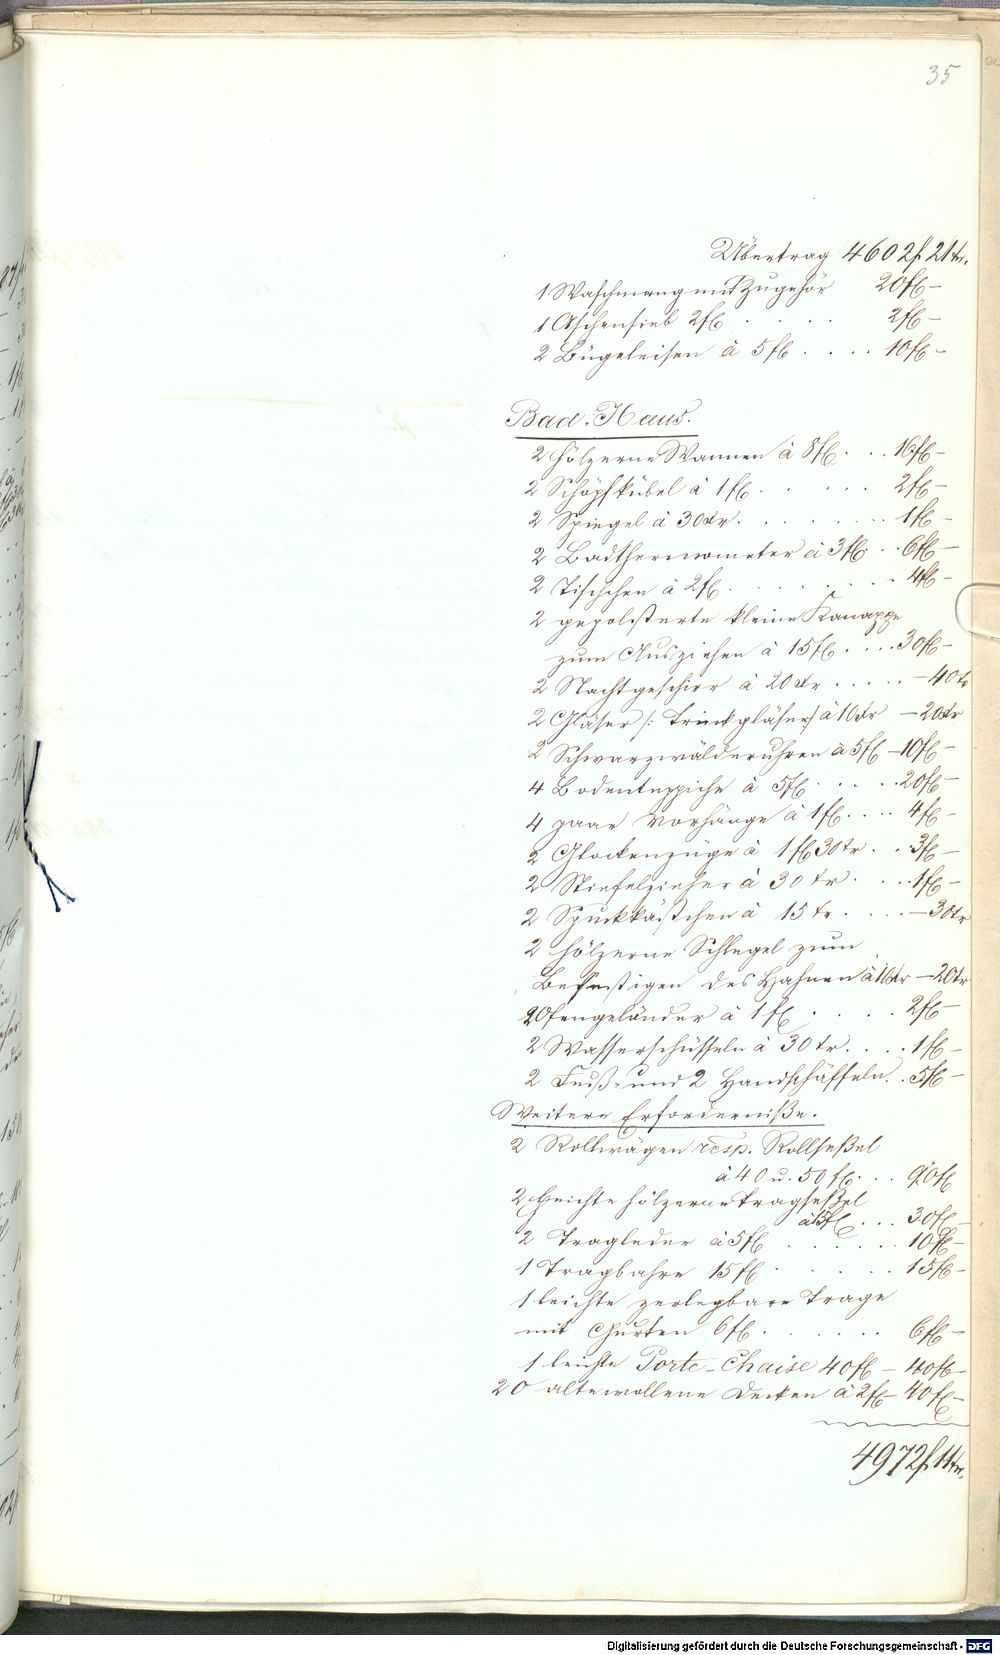 35
Übertrag 4602 f. 21 kr.
1 Waschmang mit Zugehör 20 fl –
1 Aschensieb 2 fl . . . . 2 fl –
2 Bügeleisen à 5 fl . . . . 10 fl –
Bad-Haus.
2 hölzerne Wannen à 8 fl . . . 16 fl –
2 Schöpfkübel à 1 fl . . . . . 2 fl –
2 Spiegel à 30 kr. . . . . . . 1 fl –
2 Badthermometer à 3 fl . . . 6 fl –
2 Tischchen à 2 fl . . . . . . 4 fl –
2 gepolsterte kleine Kanappe
zum Ausziehen à 15 fl . . . . 30 fl –
2 Nachtgeschirr à 20 kr . . . . . – 40 kr
2 Gläser /: Trinkgläser :/ à 10 kr – 20 kr
2 Schwarzwälderuhren à 5 fl – 10 fl –
4 Bodenteppiche à 5 fl . . . . . 20 fl –
4 paar Vorhänge à 1 fl . . . . 4 fl –
2 Glockenzüge à 1 fl 30 kr . . 3 fl –
2 Stiefelzieher à 30 kr . . . . 1 fl –
2 Spuckkästchen à 15 kr . . . . – 30 kr
2 hölzerne Schlegel zum
Befestigen des Hahnen à 10 kr – 20 kr
2 Ofengeländer à 1 fl . . . . . 2 fl –
2 Wasserschüsseln à 30 kr . . . . 1 fl –
2 Fuß- und 2 Handschäffeln . . 5 fl –
Weitere Erforderniße.
2 Rollwägen resp. Rollseßel
à 40 u. 50 fl . . . 90 fl
2 leichte hölzerne Tragseßel
à 15 fl . . . 30 fl –
2 Tragleder à 5 fl . . . . . . 10 fl –
1 Tragbahre 15 fl . . . . . . 15 fl –
1 leichte zerlegbare Trage
mit Gurten 6 fl . . . . . . 6 fl –
1 leichte Porte-Chaise 40 fl – 40 fl –
20 alte wollene Decken à 2 fl – 40 fl –
4972 f. 11 kr.
Digitalisierung gefördert durch die Deutsche Forschungsgemeinschaft - DFG